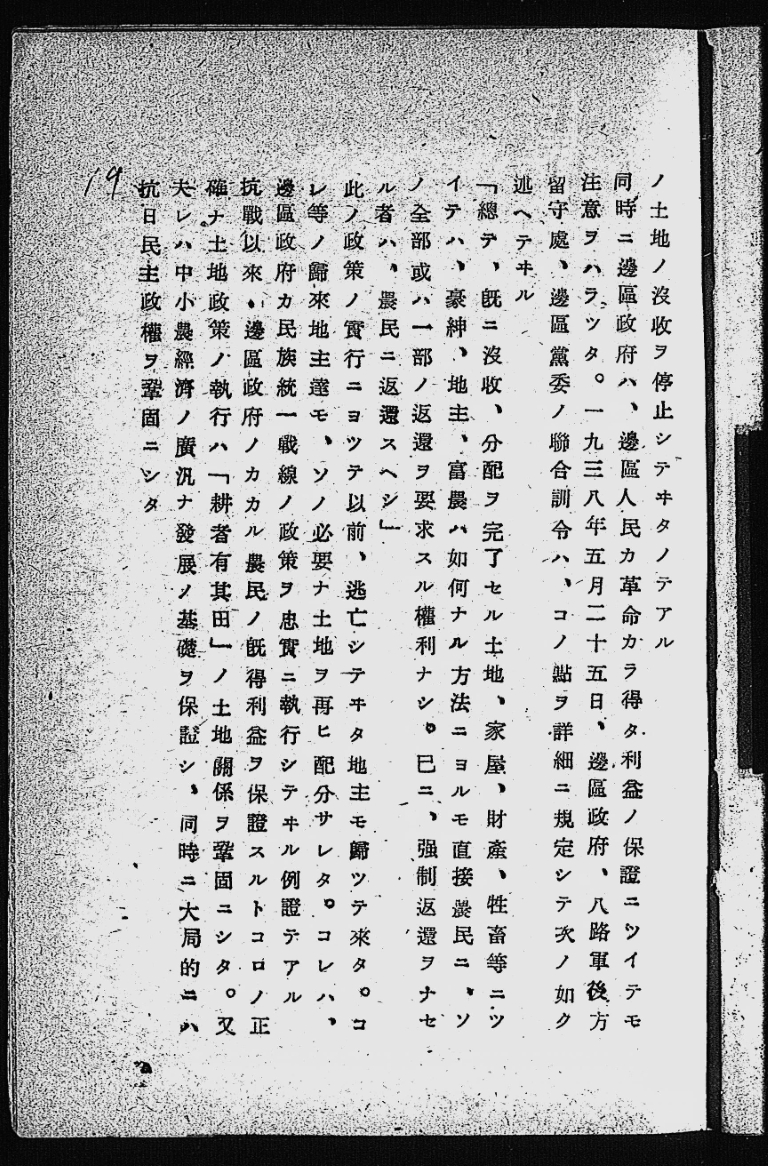 ノ土地ノ沒收ヲ停止シテヰタノテアル
同時ニ邊區政府ハ、邊區人民カ革命カラ得タ利益ノ保證ニツイテモ
注意ヲハラツタ。一九三八年五月二十五日、邊區政府、八路軍後方
留守處、邊區黨委ノ聯合訓令ハ、コノ點ヲ詳細ニ規定シテ次ノ如ク
述ヘテヰル
「總テ、既ニ沒收、分配ヲ完了セル土地、家屋、財產、牲畜等ニツ
イテハ、豪紳、地主、富農ハ如何ナル方法ニヨルモ直接農民ニ、ソ
ノ全部或ハ一部ノ返還ヲ要求スル權利ナシ。已ニ、强制返還ヲナセ
ル者ハ、農民ニ返還スヘシ」
此ノ政策ノ實行ニヨツテ以前、逃亡シテヰタ地主モ歸ツテ來タ。コ
レ等ノ歸來地主達モ、ソノ必要ナ土地ヲ再ヒ配分サレタ。コレハ、
邊區政府カ民族統一戰線ノ政策ヲ忠實ニ執行シテヰル例證テアル
抗戰以來、邊區政府ノカカル農民ノ既得利益ヲ保證スルトコロノ正
確ナ土地政策ノ執行ハ「耕者有其田」ノ土地關係ヲ鞏固ニシタ。又
夫レハ中小農經濟ノ廣汎ナ發展ノ基礎ヲ保證シ、同時ニ大局的ニハ
抗日民主政權ヲ鞏固ニシタ
19